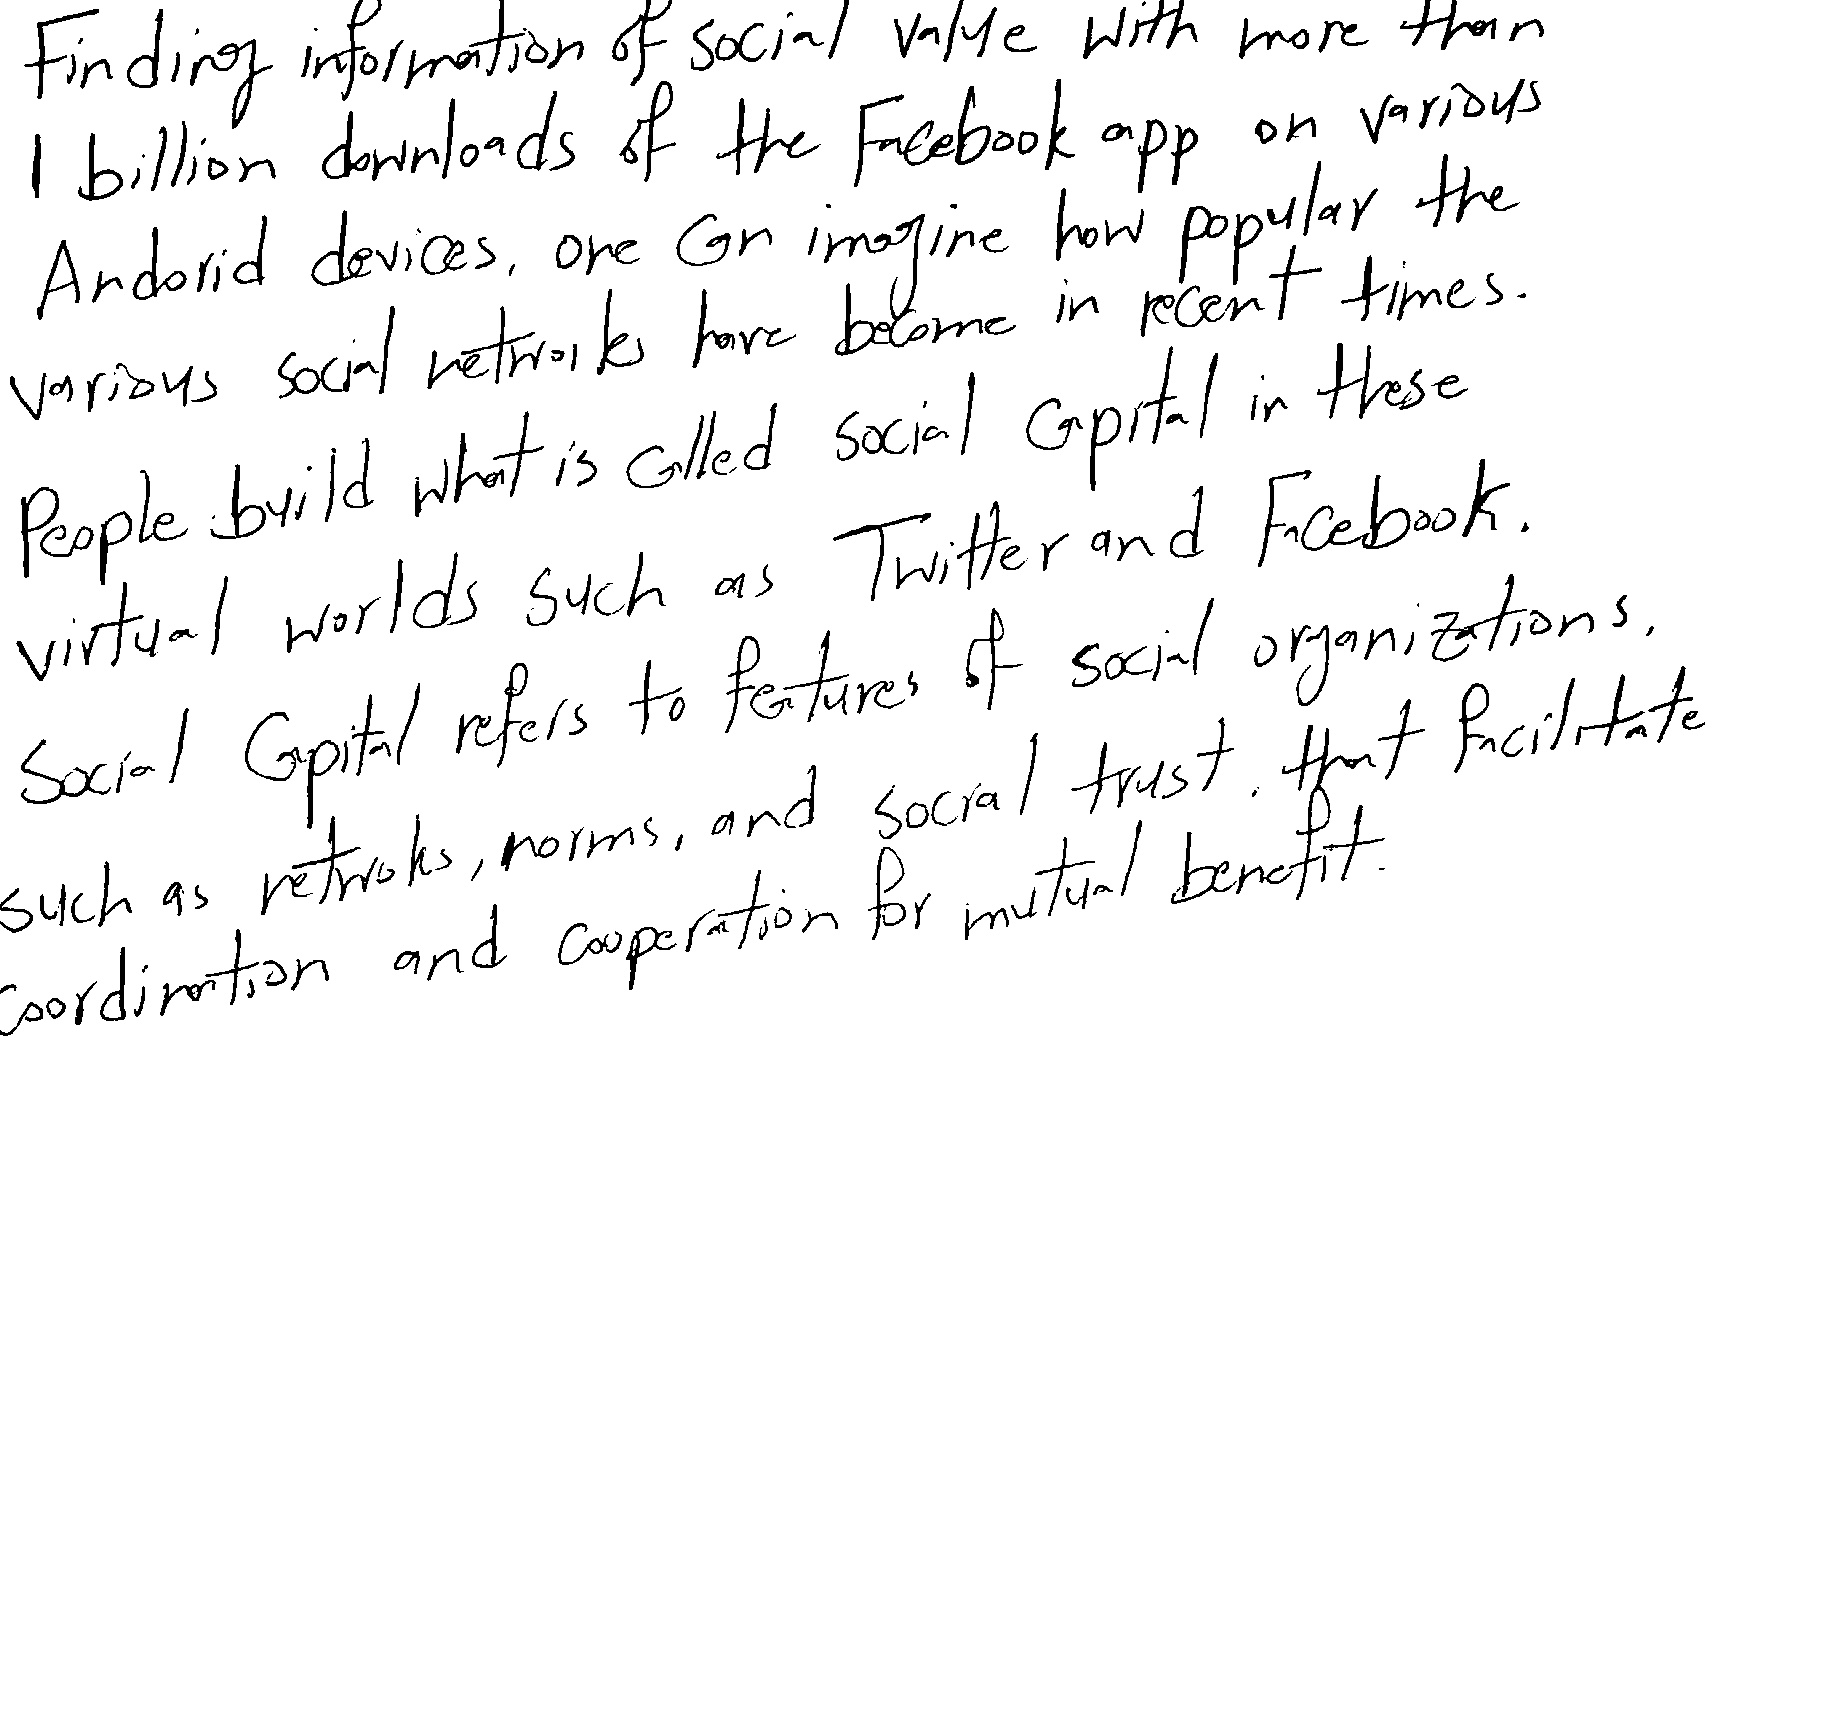 Finding information of social value with more than
1 billion downloads of the Facebook app on various
Andorid devices, one can imagine how popular the
various social networks have become in recent times.
People build what is called social capital in these
virtual worlds such as Twitter and Facebook.
Social Capital refers to features of social organizations,
such as netwroks, norms, and social trust, that facilitate
coordination and cooperation for mutual benefit.